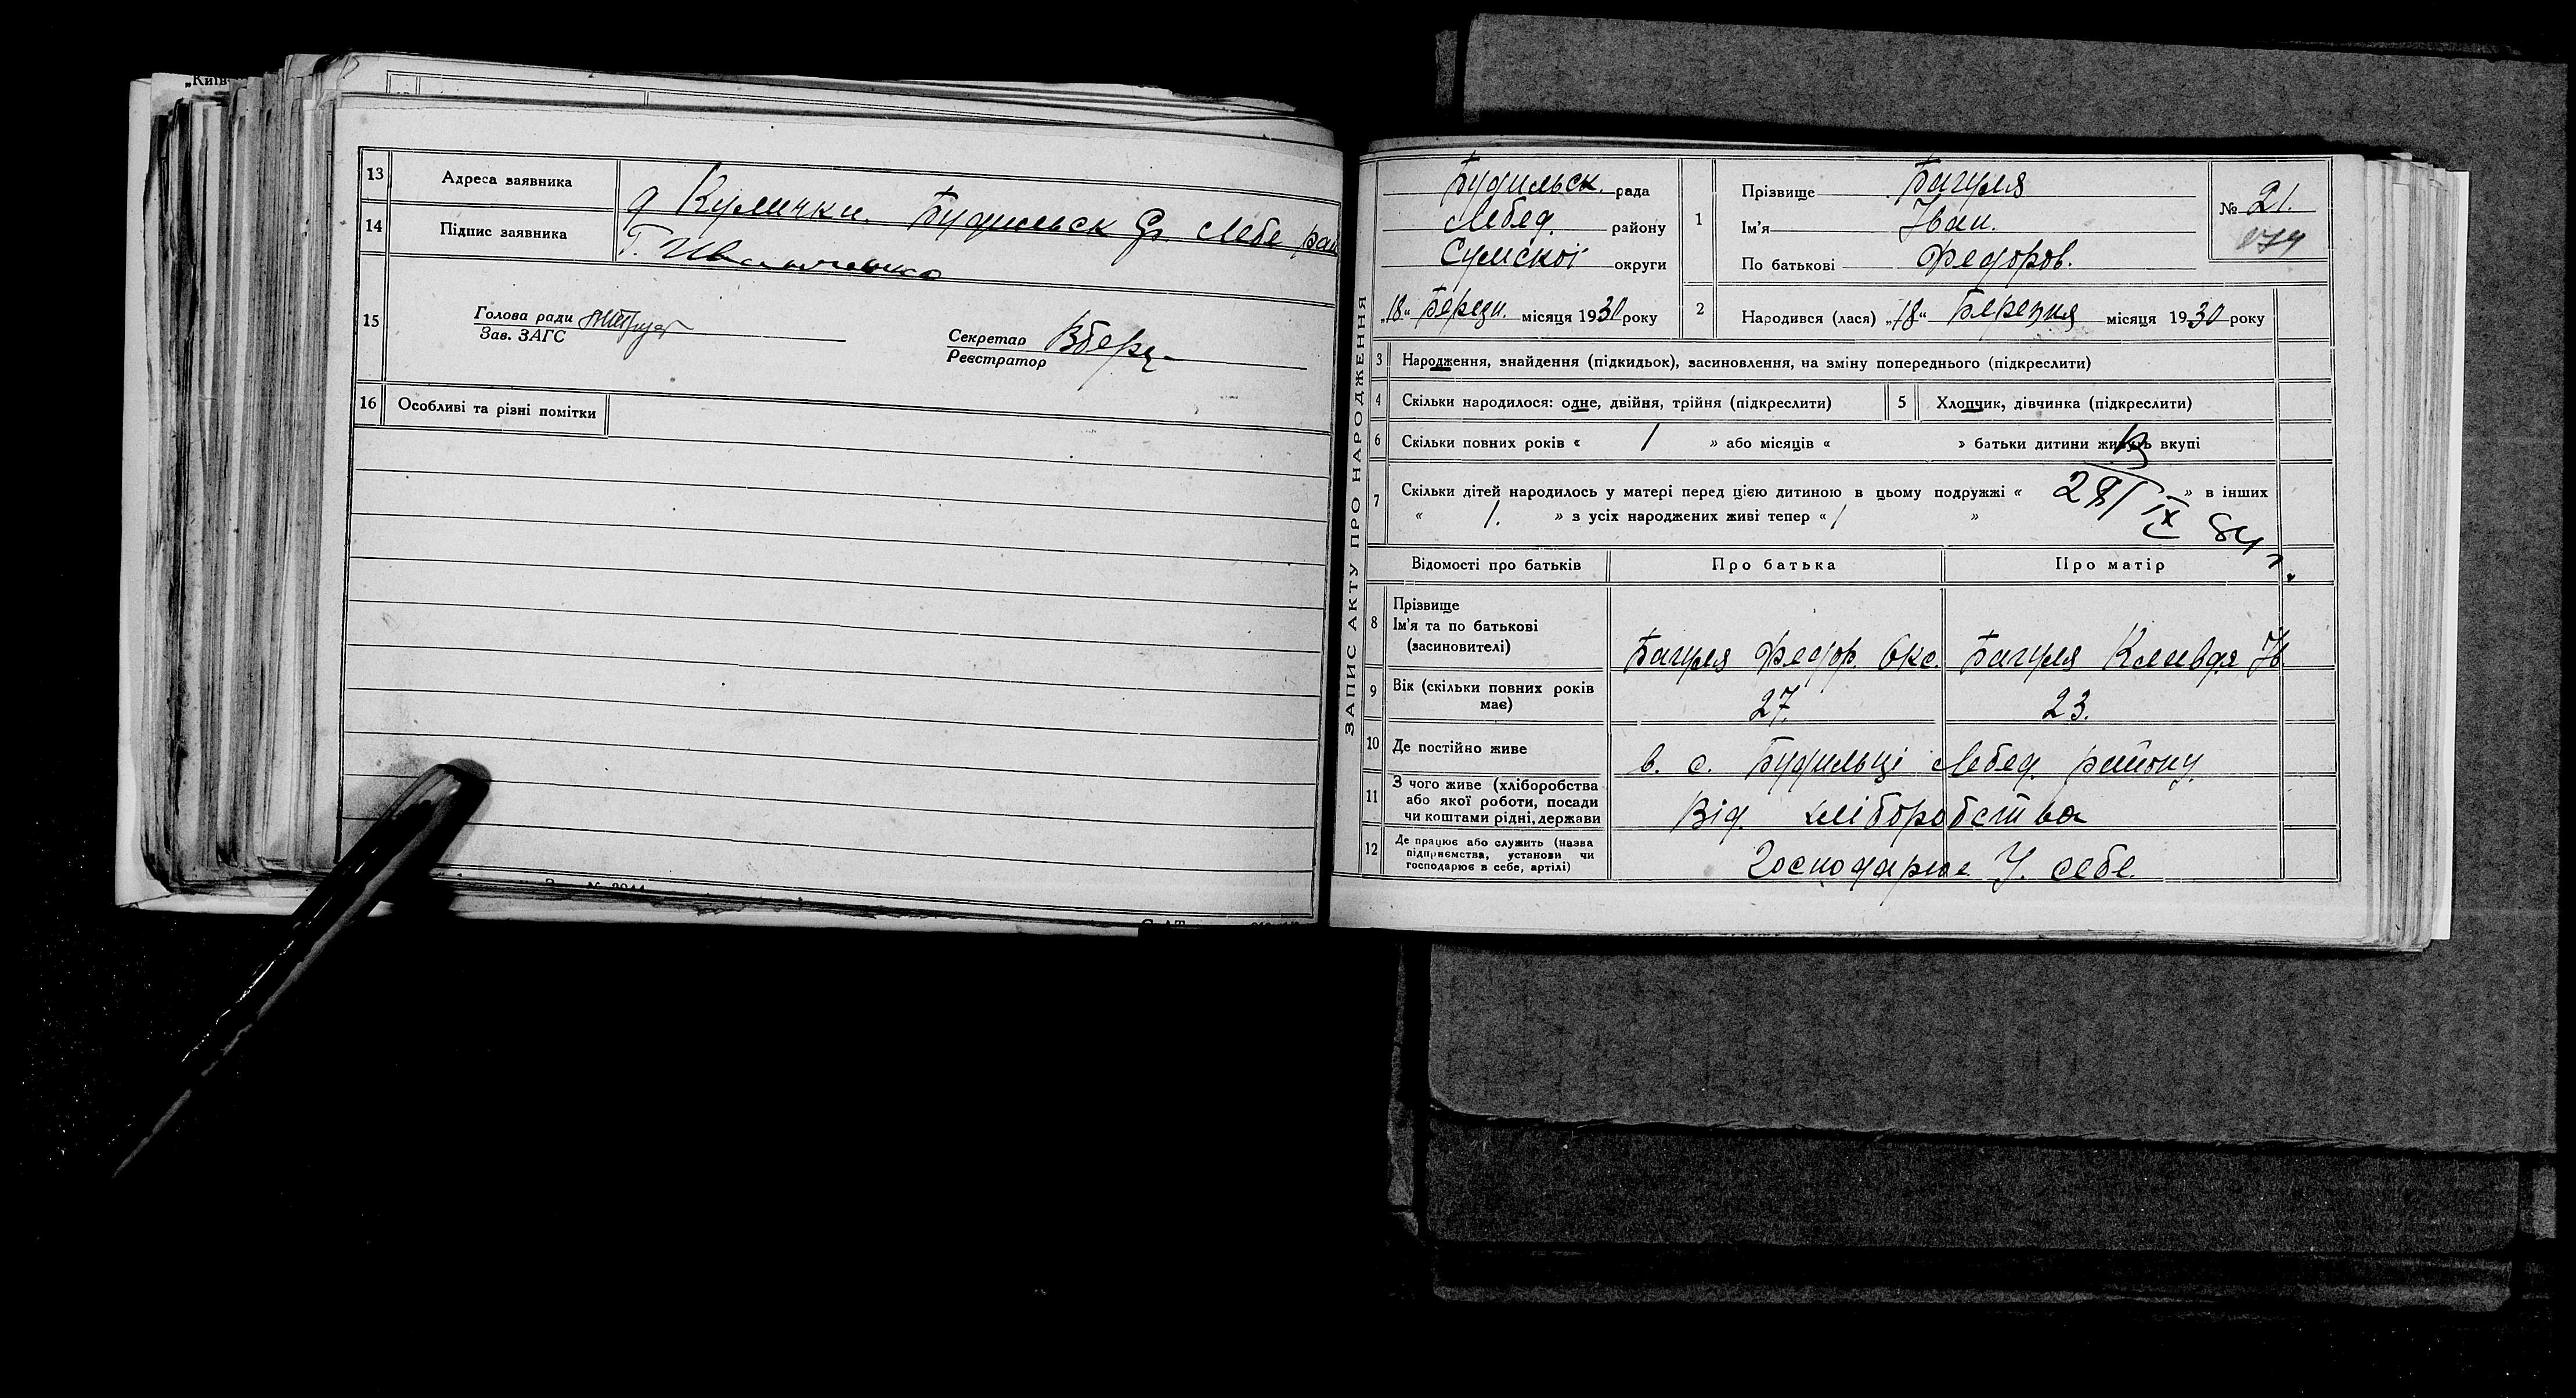 „Київ
13 Адреса заявника д Кулички. Будильск Ср. Лебе рай
14 Підпис заявника Г. Иванченко
15 Голова ради
Зав. ЗАГС
Секретар
Реєстратор
16 Особливі та різні помітки
ЗАПИС АКТУ ПРО НАРОДЖЕННЯ
Будильск. рада
Лебед. району
Сумскої округи
„18“ Березн. місяця 1930 року
1 Прізвище Багуля
Ім'я Іван.
По батькові Федоров.
№ 21.
2 Народився (лася) „18“ Березня місяця 1930 року
3 Народження, знайдення (підкидьок), засиновлення, на зміну попереднього (підкреслити)
4 Скільки народилося: одне, двійня, трійня (підкреслити) 5 Хлопчик, дівчинка (підкреслити)
6 Скільки повних років « 1 » або місяців « » батьки дитини живуть вкупі
7 Скільки дітей народилось у матері перед цією дитиною в цьому подружжі « » в інших
« 1. » з усіх народжених живі тепер « 1 »
Відомості про батьків Про батька Про матір
8 Прізвище
Ім'я та по батькові
(засиновителі)
Багуля Федор. Окс. Багуля Клавдя Ів.
9 Вік (скільки повних років
має)
27. 23.
10 Де постійно живе в. с. Будильці Лебед. району.
11 З чого живе (хліборобства
або якої роботи, посади
чи коштами рідні, держави
Від. хліборобства
12 Де працює або служить (назва
підприємства, установи чи
господарює в себе, артілі)
Господарює У. себе.